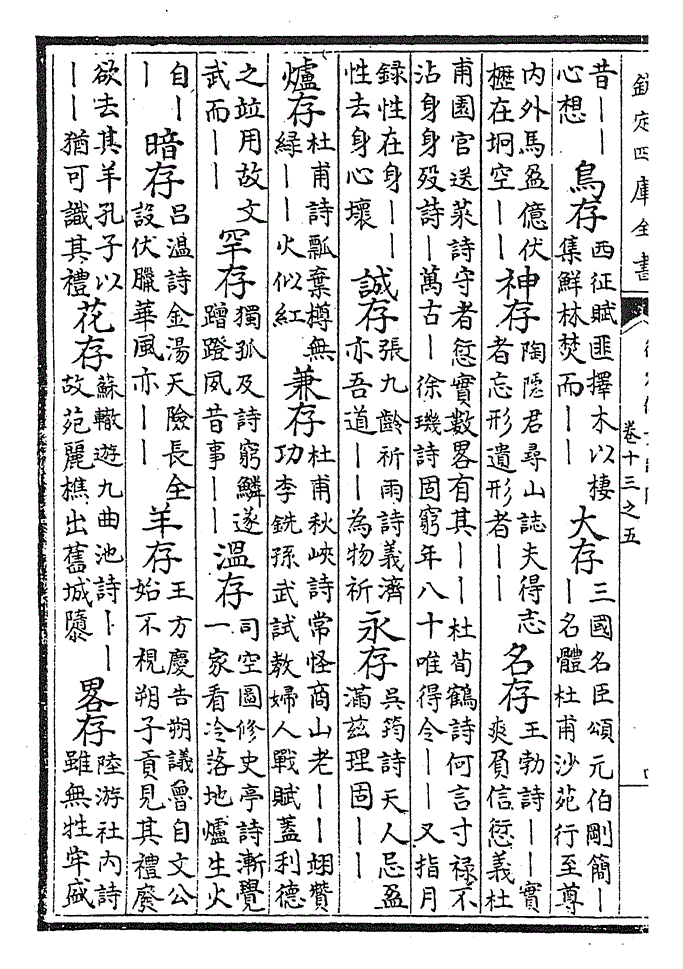 欽定四庫全書 卷十三之五
昔〡〡心想 鳥存 西征賦匪擇木以棲集鮮林焚而〡〡 大存 三國名臣頌元伯剛簡〡〡名體杜甫沙苑行至尊
內外馬盈億伏櫪在坰空〡〡 神存 陶隱君尋山誌夫得志者忘形遺形者〡〡 名存 王勃詩〡〡實爽負信愆義杜
甫園官送菜詩守者愆實數畧有其〡〡杜荀鶴詩何言寸祿不沾身身歿詩〡萬古〡徐璣詩固窮年八十唯得令〡〡又指月
錄性在身〡〡性去身心壞 誠存 張九齡祈雨詩義濟亦吾道〡〡為物祈 永存 吳筠詩天人忌盈滿茲理固〡〡
爐存 杜甫詩瓢棄樽無綠〡〡火似紅 兼存 杜甫秋峽詩常怪商山老〡〡翊贊功李銑孫武試教婦人戰賦蓋利德
之竝用故文武而〡〡 罕存 獨孤及詩窮鱗遂蹭蹬夙昔事〡〡 溫存 司空圖修史亭詩漸覺一家看冷落地爐生火
自〡〡 暗存 呂溫詩金湯天險長全設伏臘華風亦〡〡 羊存 王方慶告朔議魯自文公始不視朔子貢見其禮廢
欲去其羊孔子以〡〡猶可識其禮 花存 蘇轍遊九曲池詩〡〡故苑麗樵出舊城隳 畧存 陸游社內詩雖無牲牢盛